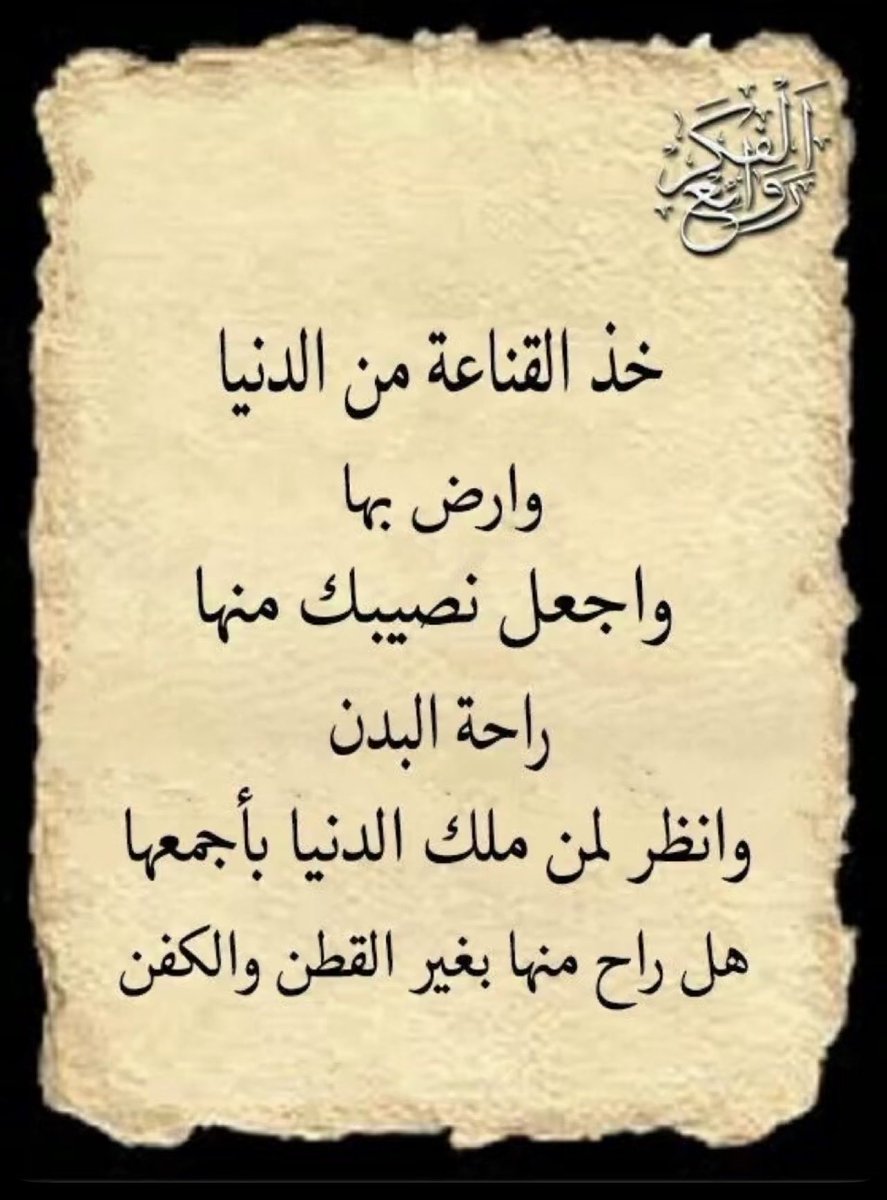 روائع
الفكر
خذ القناعة من الدنيا
وارض بها
واجعل نصيبك منها
راحة البدن
وانظر لمن ملك الدنيا بأجمعها
هل راح منها بغير القطن والكفن